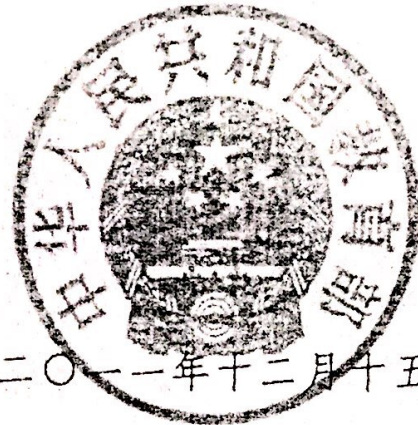 中华人民共和国教育部
二〇一一年十二月十五